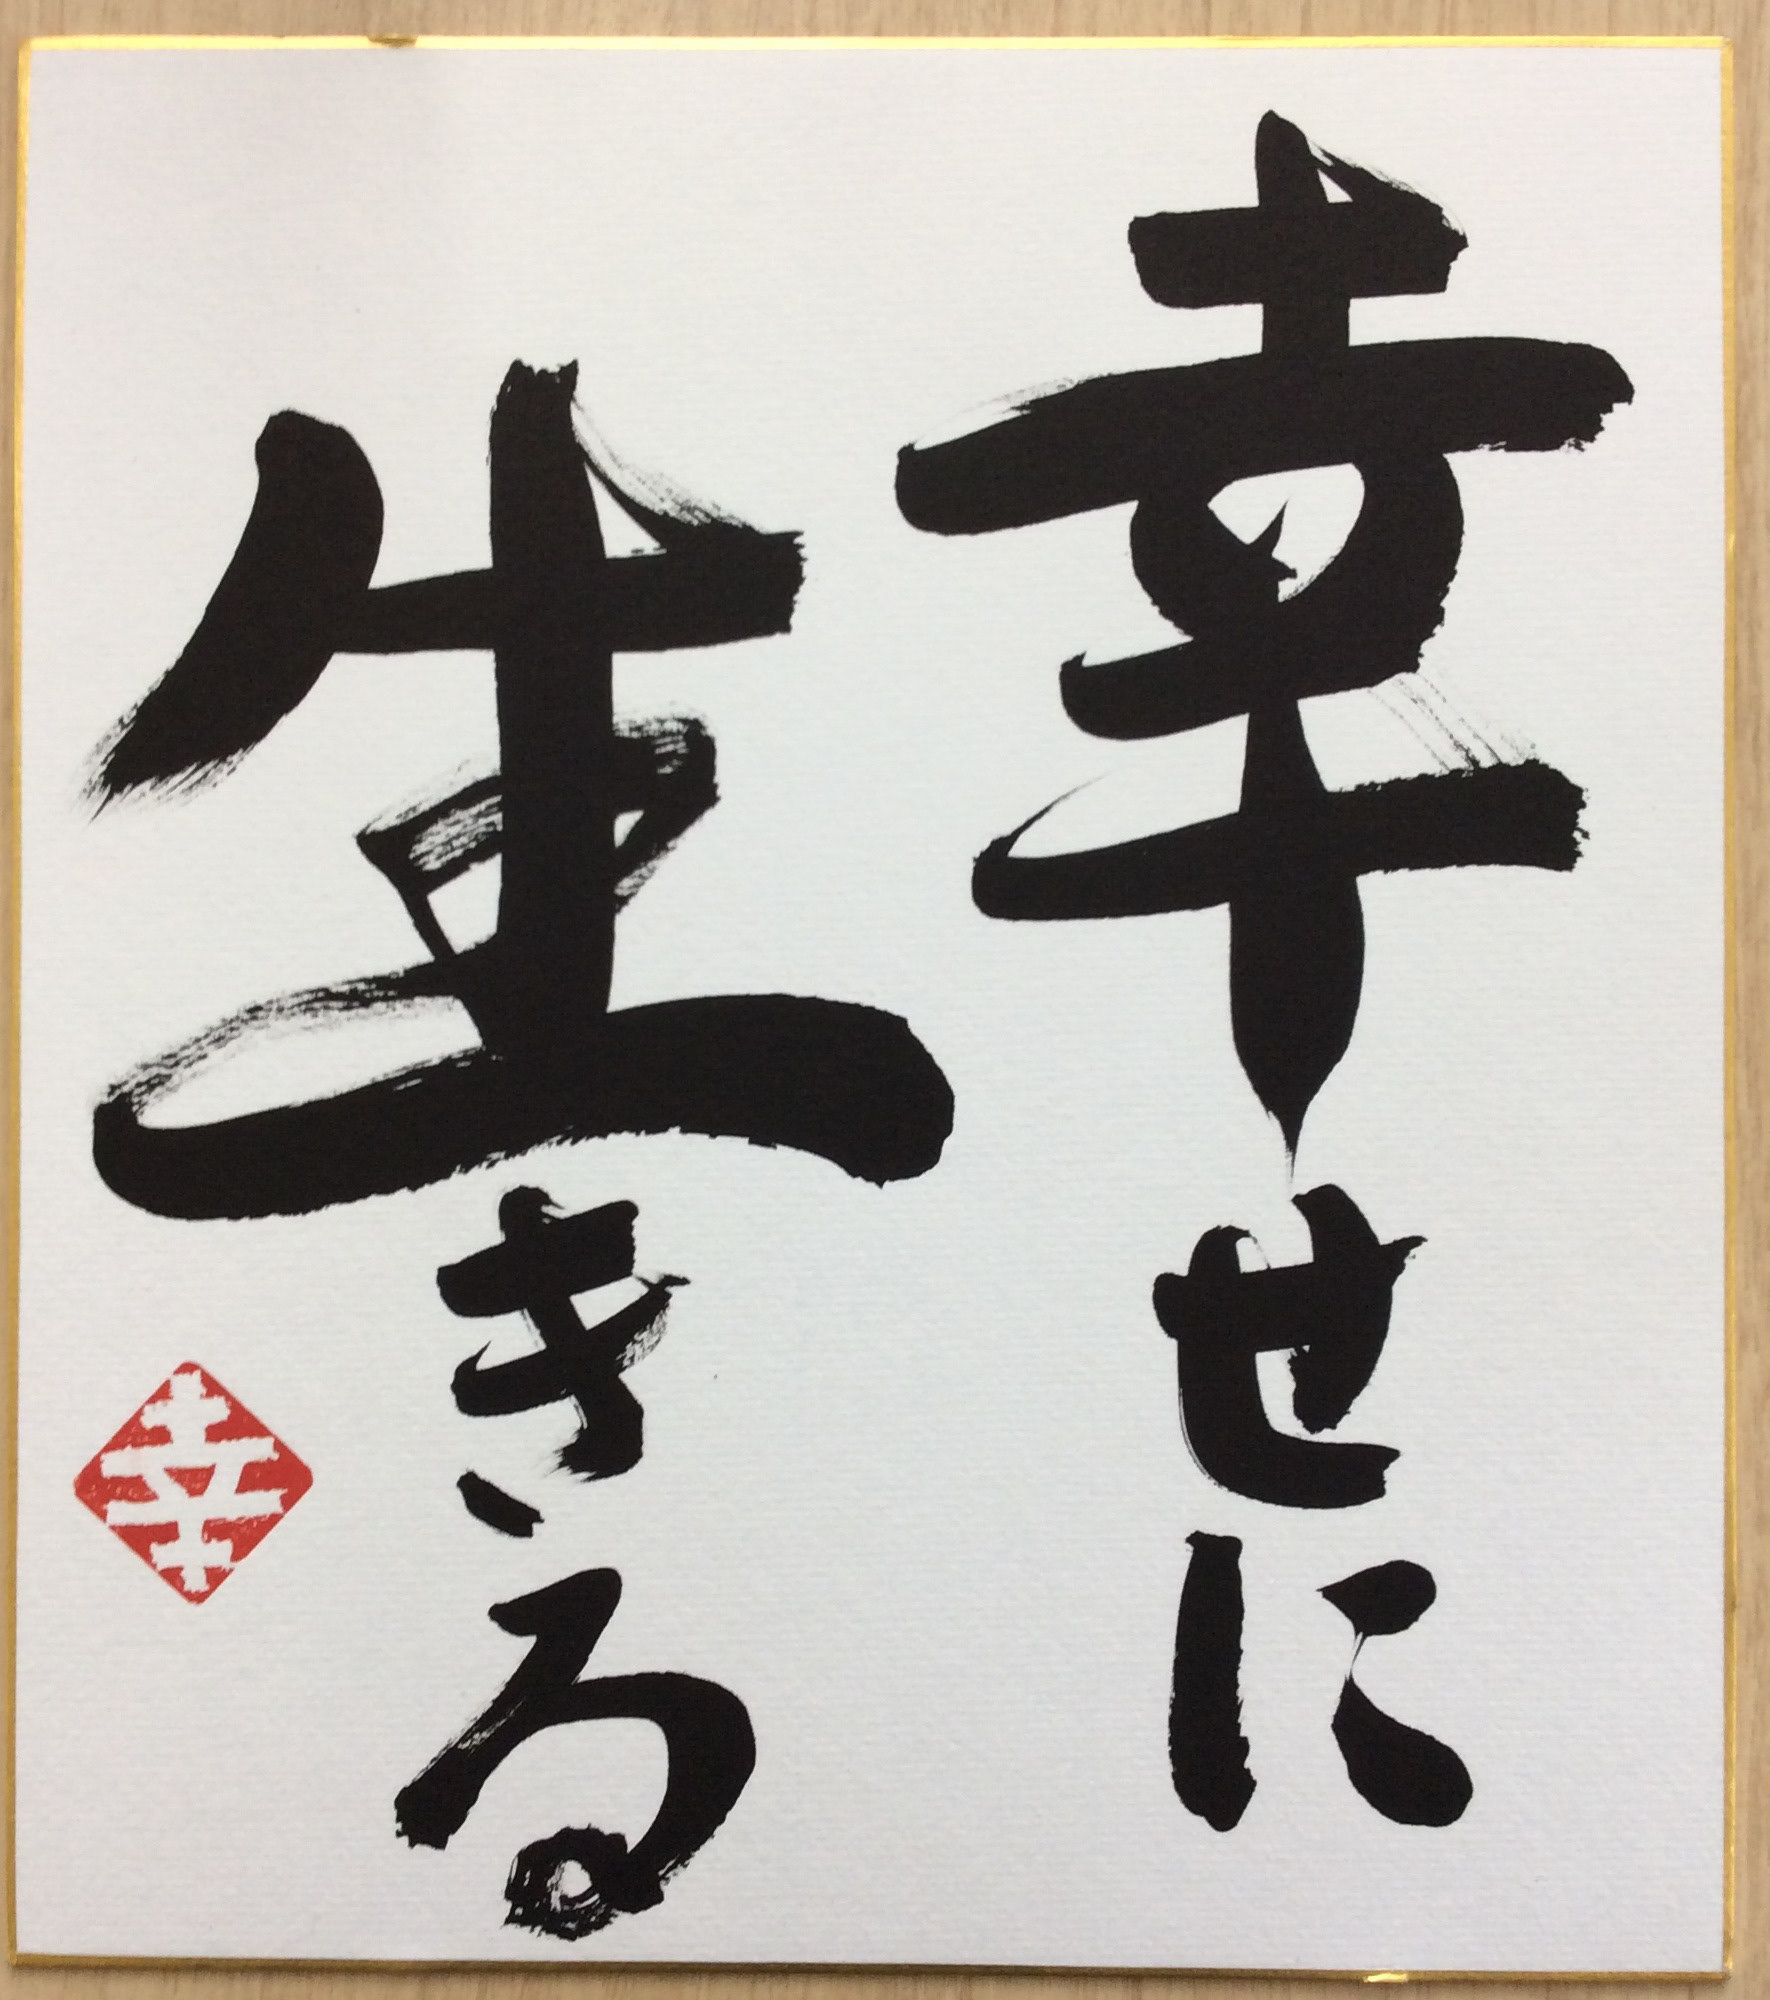 幸せに
生きる
幸